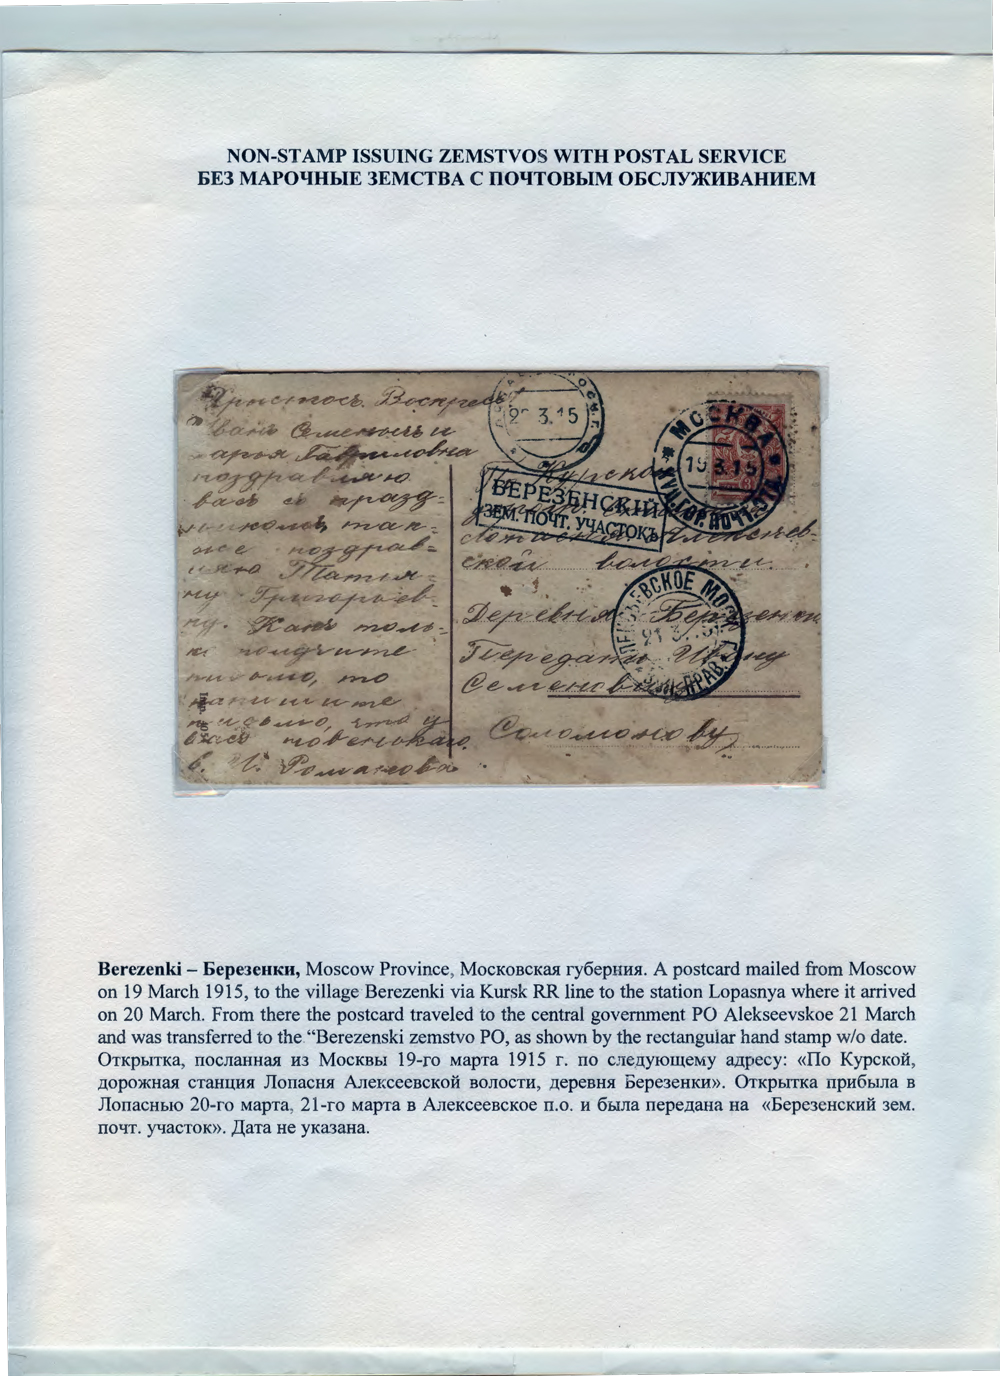 NON-STAMP ISSUING ZEMSTVOS WITH POSTAL SERVICE
БЕЗ МАРОЧНЫЕ ЗЕМСТВА С ПОЧТОВЫМ ОБСЛУЖИВАНИЕМ
Христосъ Воскресе
Иванъ Семенычъ и
Дарья Гавриловна
поздравляю
васъ съ празд-
никомъ так-
же поздрав-
ляю Татья-
ну Григорьев-
ну. Какъ толь-
ко получите
письмо, то
напишите
письмо, что у
васъ новенькаго.
Романова
МОСКВА
19.3.15
ГОР. ПОЧТ. ОТД.
3.15
По Курской
БЕРЕЗЕНСКІЙ
ЗЕМ. ПОЧТ. УЧАСТОКЪ
ской волости.
АЛЕКСѢЕВСКОЕ МОСК. Г.
21.3.15
Деревня Березенки
Передать Ивану
Семеновичу
Соломонову
Berezenki – Березенки, Moscow Province, Московская губерния. A postcard mailed from Moscow
on 19 March 1915, to the village Berezenki via Kursk RR line to the station Lopasnya where it arrived
on 20 March. From there the postcard traveled to the central government PO Alekseevskoe 21 March
and was transferred to the “Berezenski zemstvo PO, as shown by the rectangular hand stamp w/o date.
Открытка, посланная из Москвы 19-го марта 1915 г. по следующему адресу: «По Курской,
дорожная станция Лопасня Алексеевской волости, деревня Березенки». Открытка прибыла в
Лопаснью 20-го марта, 21-го марта в Алексеевское п.о. и была передана на «Березенский зем.
почт. участок». Дата не указана.